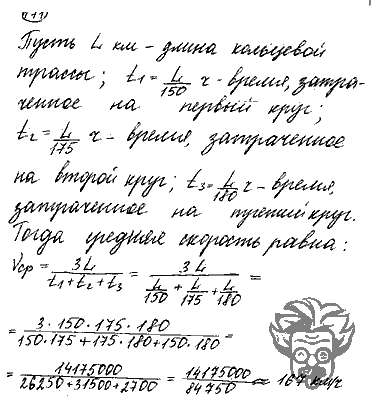 Пусть L км – длина кольцевой
трассы; t₁ = L/150 ч – время, затра-
ченное на первый круг;
t₂ = L/175 ч – время, затраченное
на второй круг; t₃ = L/180 ч – время,
затраченное на третий круг.
Тогда средняя скорость равна:
Vср = 3L / (t₁ + t₂ + t₃) = 3L / (L/150 + L/175 + L/180) =
= 3·150·175·180 / (150·175 + 175·180 + 150·180) =
= 14175000 / (26250 + 31500 + 2700) = 14175000 / 84750 ≈ 167 км/ч